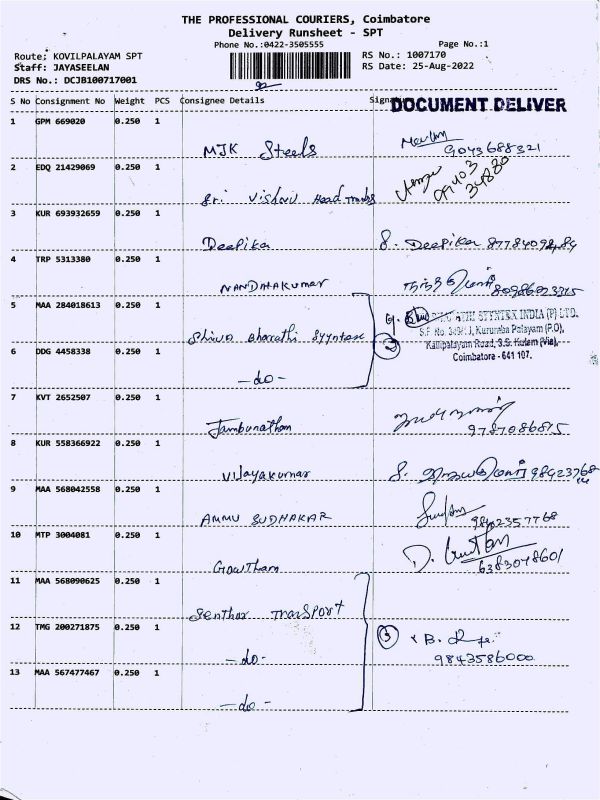 THE PROFESSIONAL COURIERS, Coimbatore
Delivery Runsheet - SPT
Phone No.:0422-3505555
Page No.:1
Route: KOVILPALAYAM SPT
RS No.: 1007170
Staff: JAYASEELAN
RS Date: 25-Aug-2022
DRS No.: DCJB100717001
S No Consignment No Weight PCS Consignee Details
DOCUMENT DELIVER
1 GPM 669020 0.250 1
MJK Steels
9043688321
2 EDQ 21429069 0.250 1
Sri Vishnu
3 KUR 693932659 0.250 1
Deepika
S. Deepika
4 TRP 5313380 0.250 1
NANDHAKUMAR
5 MAA 284018613 0.250 1
INDIA (P) LTD.
Kurumba Palayam (P.O),
Shiva Bharathi
Kallipalayam Road, S.S. Kulam (Via),
6 DDG 4458338 0.250 1
Coimbatore - 641 107.
- do -
7 KVT 2652507 0.250 1
Jambunatham
9787086815
8 KUR 558366922 0.250 1
Vijayakumar
9 MAA 568042558 0.250 1
AMMU SUDHAKAR
10 MTP 3004081 0.250 1
Gowtham
6383048601
11 MAA 568090625 0.250 1
Senthur Transport
12 TMG 200271875 0.250 1
3
B.
- do -
9843586000
13 MAA 567477467 0.250 1
- do -